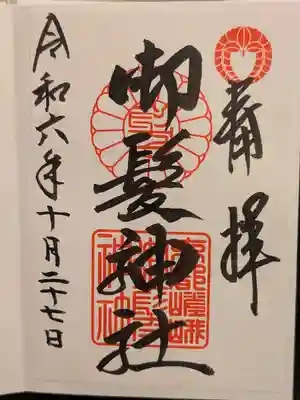 奉拝
御髪神社
令和六年十月二十七日